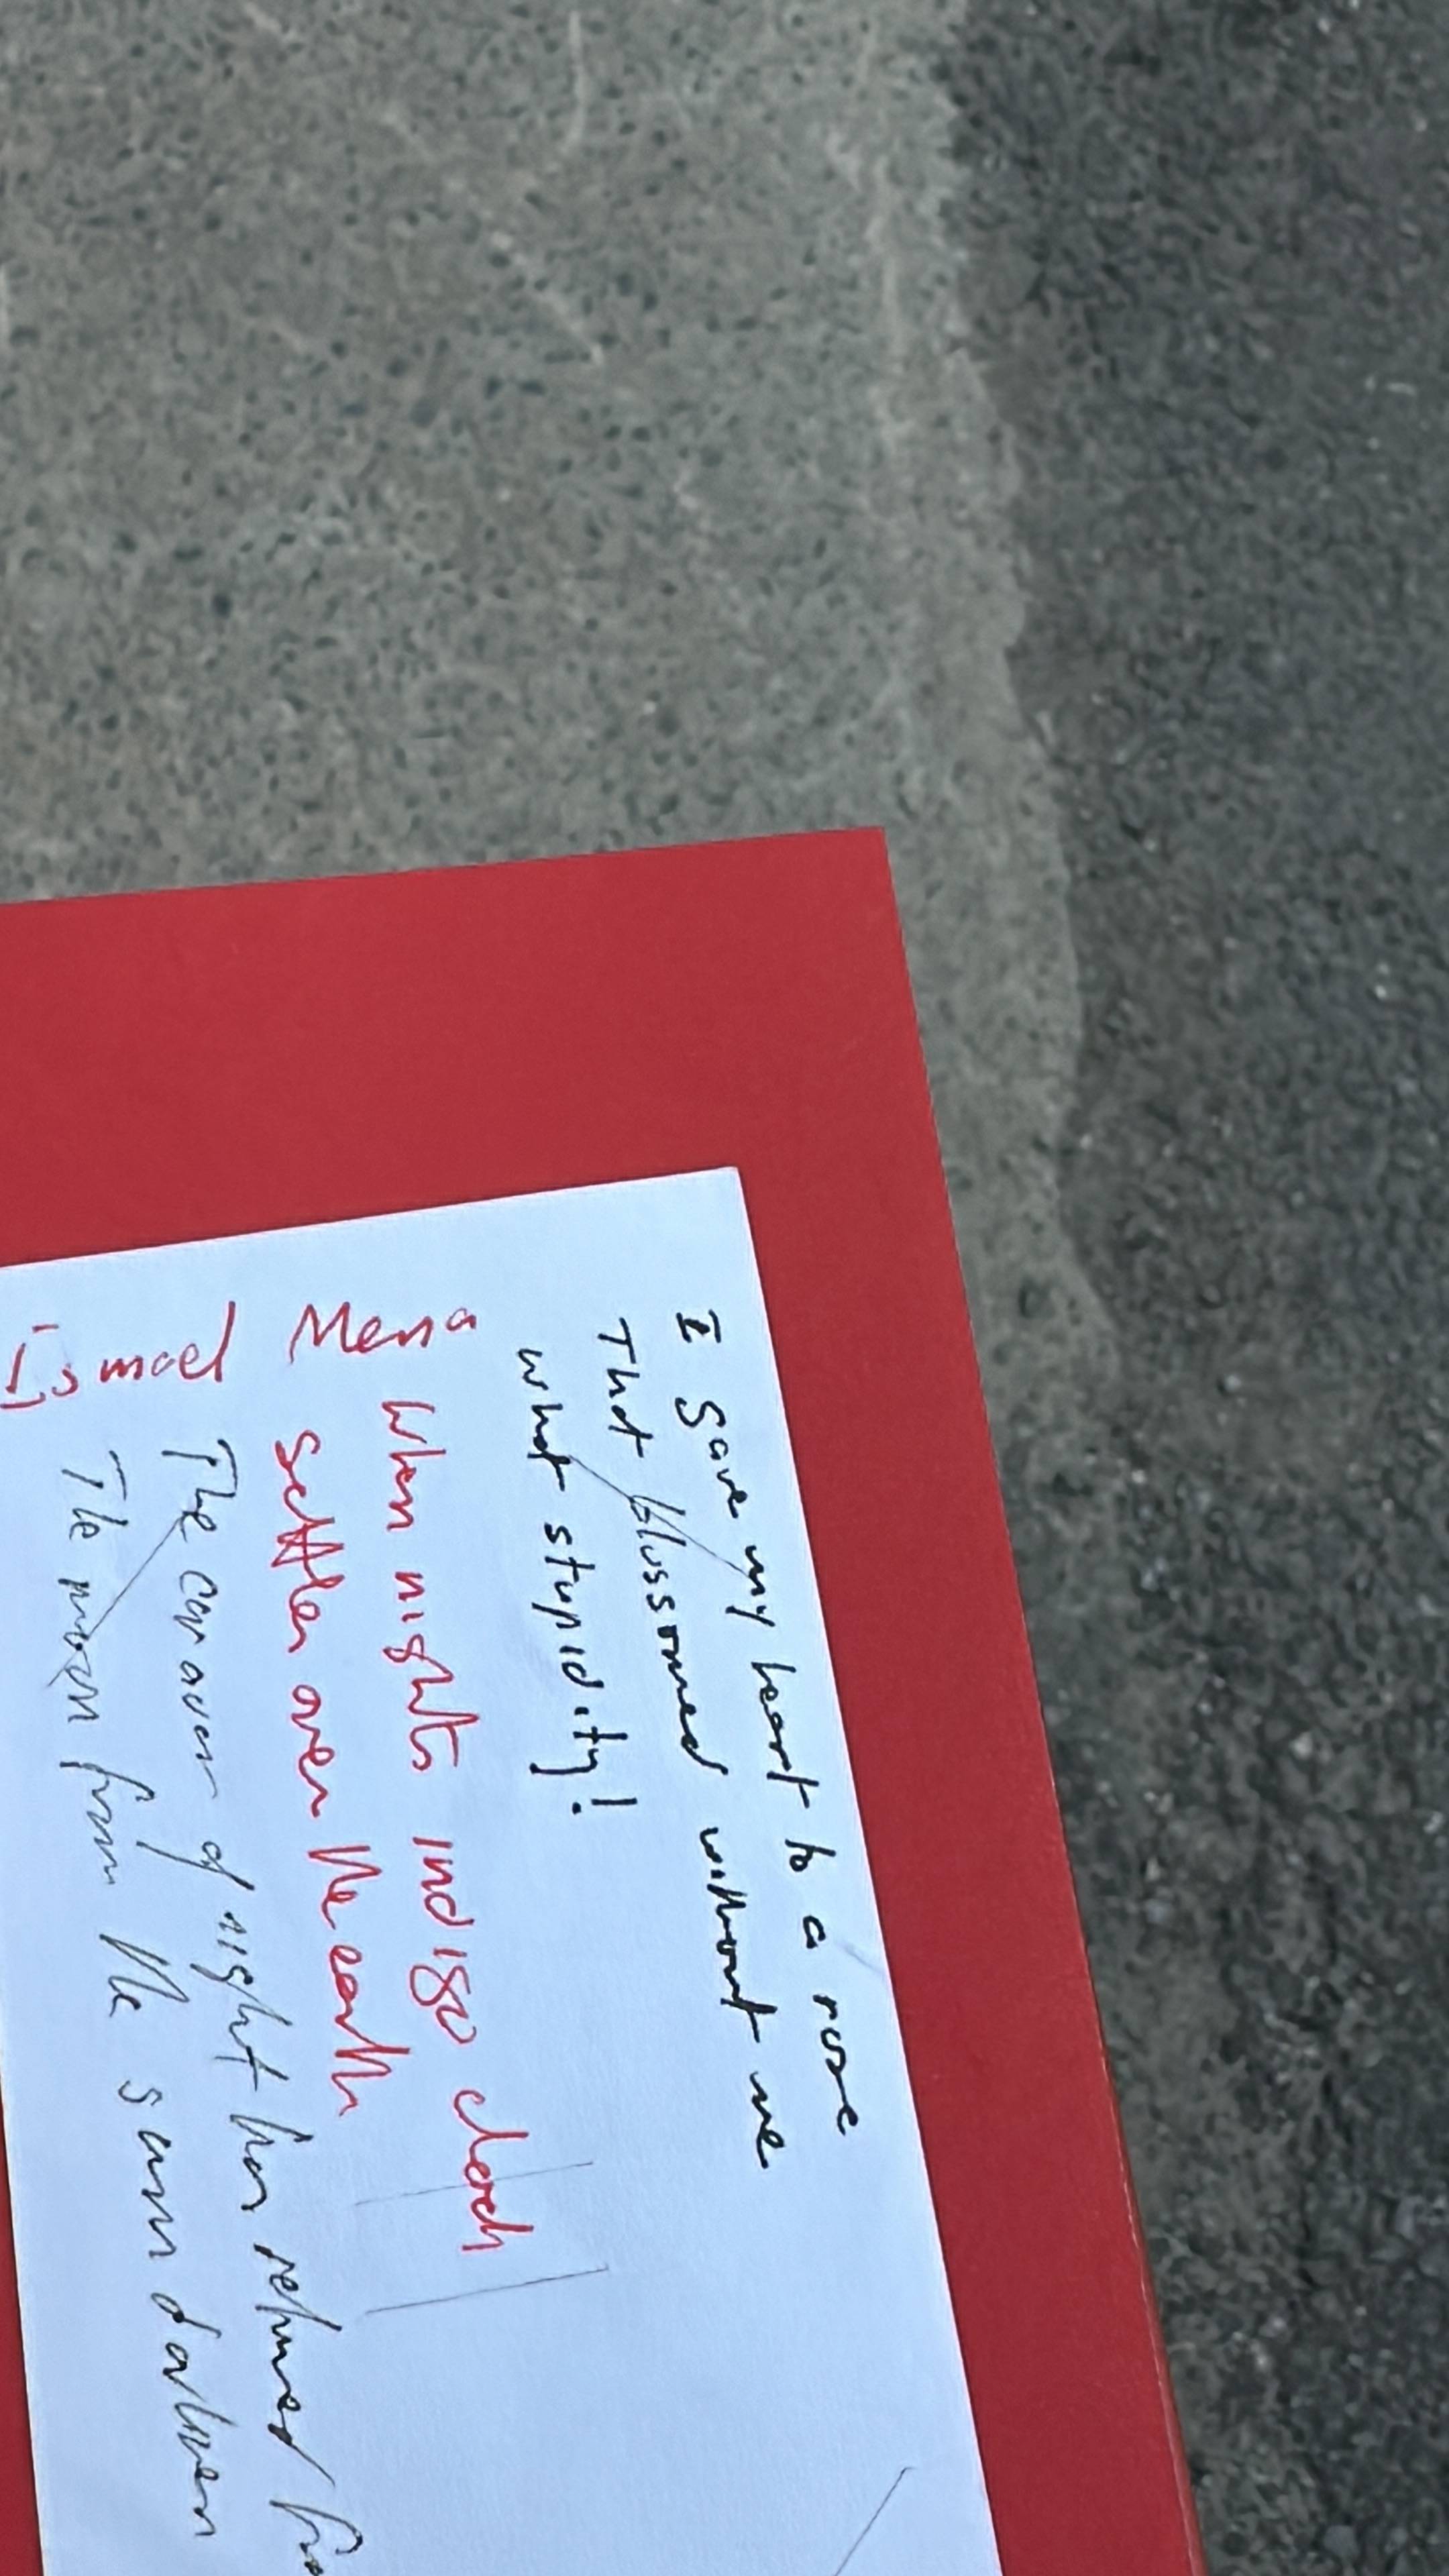 I gave my heart to a rose
That blossomed without me
what stupidity!
Mena
When nights indigo cloak
settles over the earth
Ismael
The caravan of night has returned
The moon from the same darkness